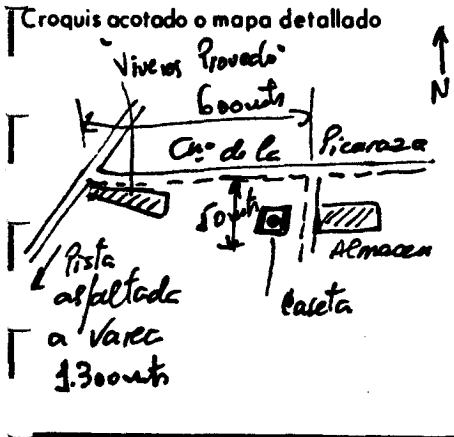 Croquis acotado o mapa detallado
"Viveros Provedo"
600 mts
N
Cno de la Picaraza
50 mts
Almacen
Caseta
Pista
asfaltada
a Varea
1.300 mts